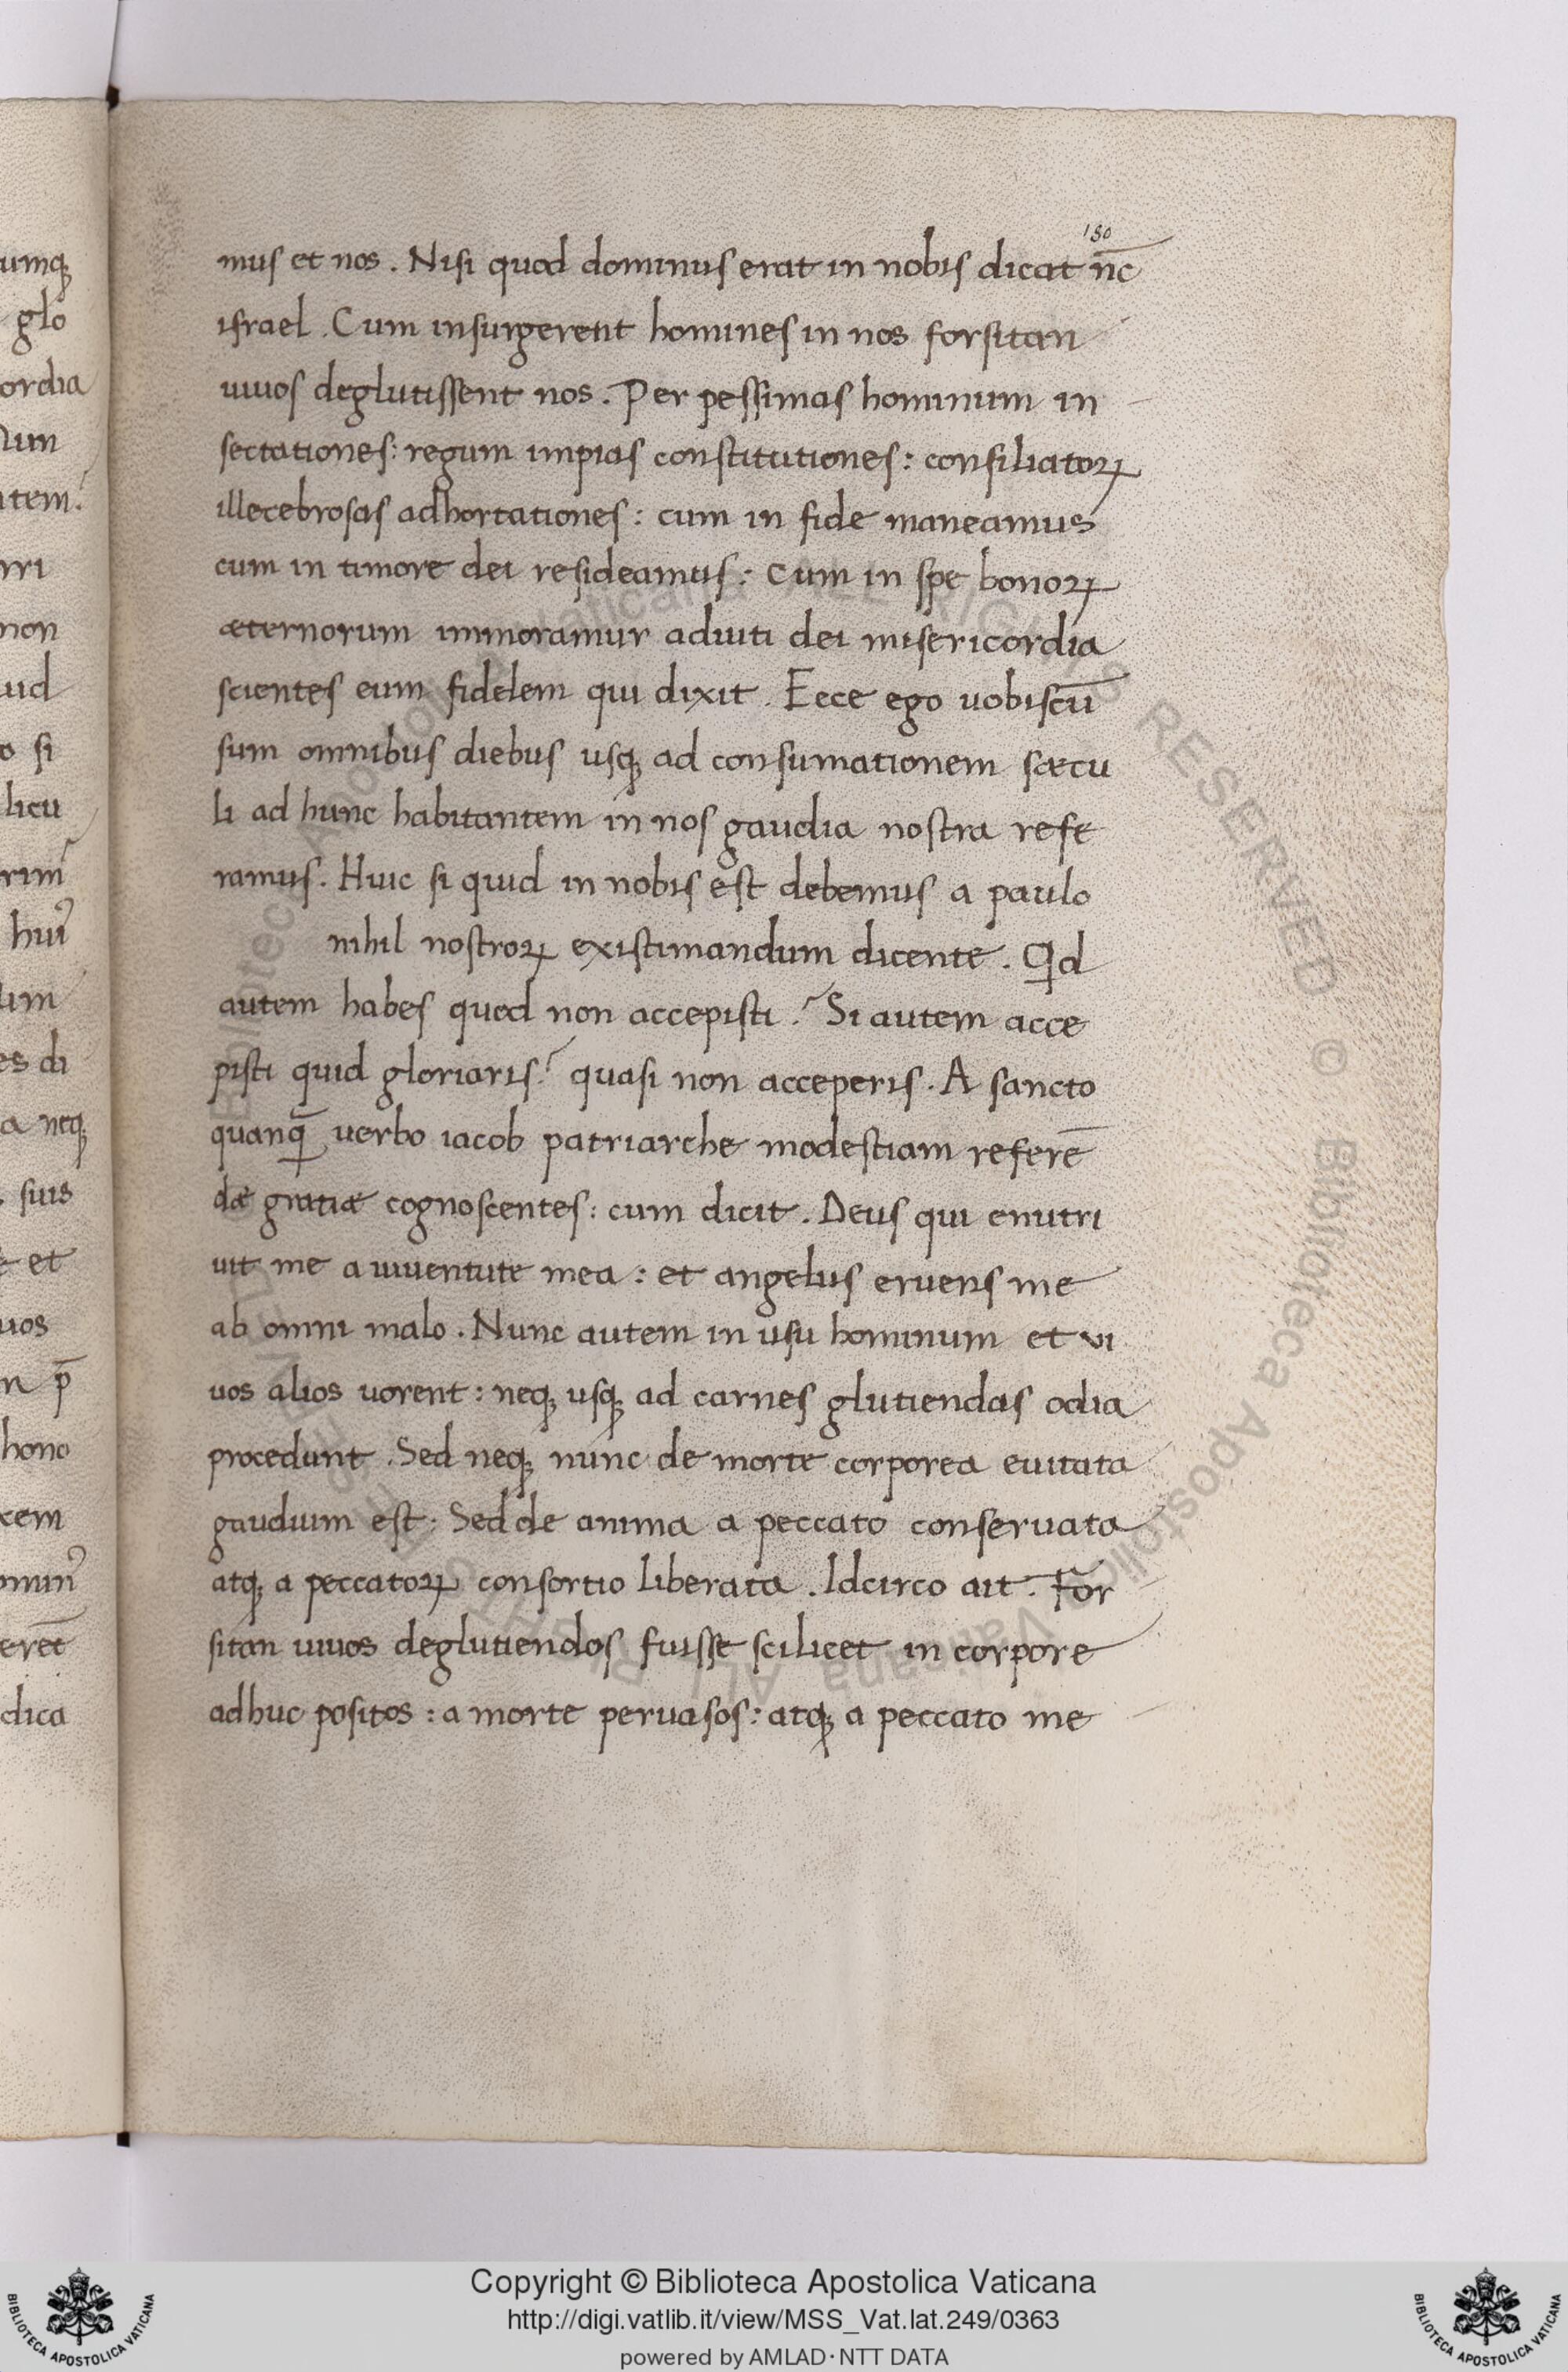 180
mus et nos. Nisi quod dominus erat in nobis dicat nc̄
israel. Cum insurgerent homines in nos forsitan
uiuos deglutissent nos. Per pessimas hominum in
sectationes: regum impias constitutiones: consiliatoꝝ
illecebrosas adhortationes: cum in fide maneamus
cum in timore dei resideamus: Cum in spe bonoꝝ
æternorum immoramur adiuti dei misericordia
scientes eum fidelem qui dixit. Ecce ego uobiscū
sum omnibus diebus usqꝫ ad consumationem sæcu
li ad hunc habitantem in nos gaudia nostra refe
ramus. Huic si quid in nobis est debemus a paulo
nihil nostroꝝ existimandum dicente. Qd
autem habes quod non accepisti? Si autem acce
pisti quid gloriaris? quasi non acceperis. A sancto
quanꝗ̄ uerbo iacob patriarche modestiam referē
dæ gratiæ cognoscentes: cum dicit. Deus qui enutri
uit me a iuuentute mea: et angelus eruens me
ab omni malo. Nunc autem in usu hominum et vi
uos alios uorent: neqꝫ usqꝫ ad carnes glutiendas odia
procedunt. Sed neqꝫ nunc de morte corporea euitata
gaudium est: Sed de anima a peccato conseruata
atqꝫ a peccatoꝝ consortio liberata. Idcirco ait. For
sitan uiuos deglutiendos fuisse scilicet in corpore
adhuc positos: a morte peruasos: atqꝫ a peccato me
Copyright © Biblioteca Apostolica Vaticana
http://digi.vatlib.it/view/MSS_Vat.lat.249/0363
powered by AMLAD·NTT DATA
BIBLIOTECA APOSTOLICA VATICANA
BIBLIOTECA APOSTOLICA VATICANA